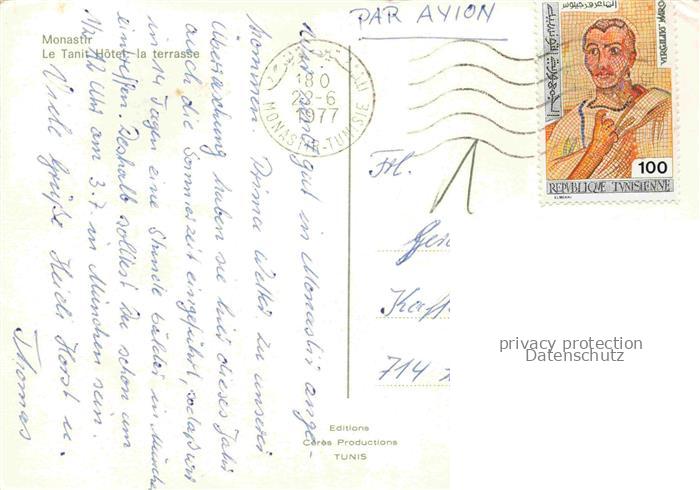 Monastir
Le Tanit Hôtel, la terrasse
PAR AVION
Wir sind gut in Monastir ange-
kommen. Prima Wetter zu unserer
Überraschung haben sie hier dieses Jahr
auch die Sommerzeit eingeführt, sodaß wir
in 14 Tagen eine Stunde später in München
eintreffen. Deshalb solltest Du schon um
Uhr am 3.7. in München sein.
Viele Grüße Heidi Horst u.
Thomas
180
1977
MONASTIR-TUNISIE
الجمهورية التونسية
VERGILIUS MARO
100
REPUBLIQUE TUNISIENNE
Frl.
714
privacy protection
Datenschutz
Editions
Cérès Productions
TUNIS